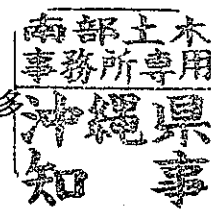 南部土木
事務所専用
多
沖縄県
知事